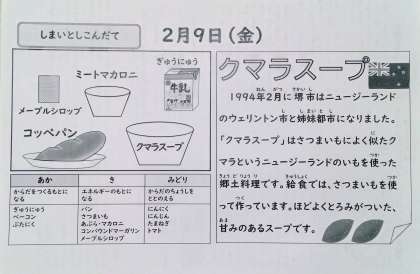 しまいとしこんだて
2月9日(金)
ミートマカロニ
ぎゅうにゅう
牛乳
メープルシロップ
コッペパン
クマラスープ
あか
き
みどり
からだをつくるもとに
なる
エネルギーのもとに
なる
からだのちょうしを
ととのえる
ぎゅうにゅう
ベーコン
ぶたにく
パン
さつまいも
あぶら・マカロニ
コンパウンドマーガリン
メープルシロップ
にんにく
にんじん
たまねぎ
トマト
クマラスープ
ねん がつ さかいし
1994年2月に堺市はニュージーランド
し しまいとし
のウェリントン市と姉妹都市になりました。
に
「クマラスープ」はさつまいもによく似たク
つか
マラというニュージーランドのいもを使った
きょうどりょうり きゅうしょく つか
郷土料理です。給食では、さつまいもを使
つく
って作っています。ほどよくとろみがついた、
あま
甘みのあるスープです。